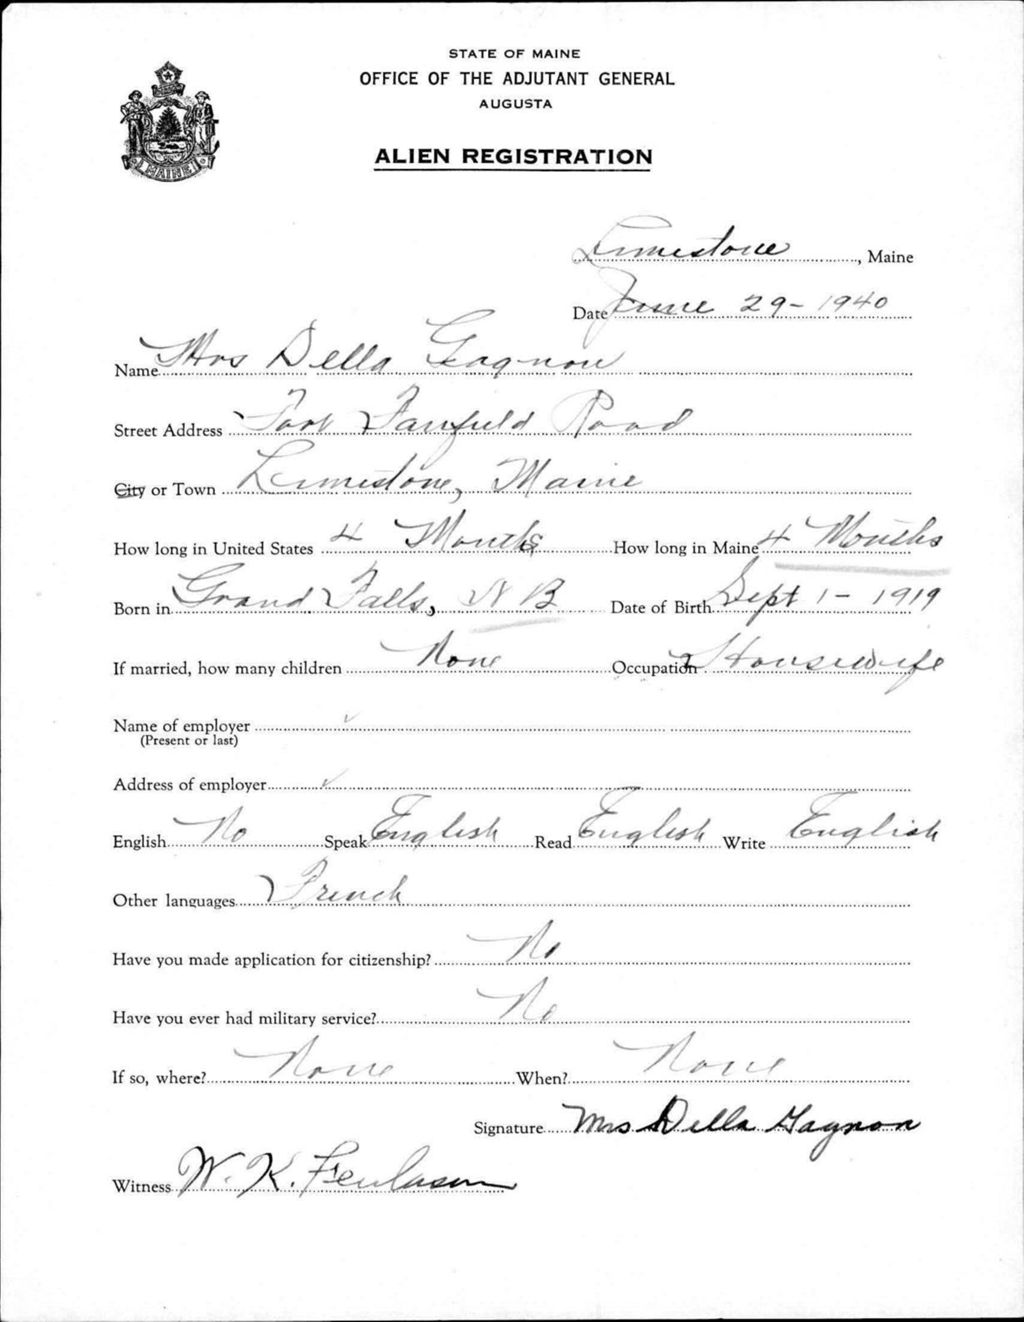 STATE OF MAINE
OFFICE OF THE ADJUTANT GENERAL
AUGUSTA
ALIEN REGISTRATION
MAINE
Limestone, Maine
Date June 29-1940
Name Mrs Della Gagnon
Street Address Fort Fairfield Road
City or Town Limestone, Maine
How long in United States 4 Months How long in Maine 4 Months
Born in Grand Falls, N B Date of Birth Sept 1 - 1919
If married, how many children None Occupation Housewife
Name of employer
(Present or last)
Address of employer
English No Speak English Read English Write English
Other languages French
Have you made application for citizenship? No
Have you ever had military service? No
If so, where? None When? None
Signature Mrs Della Gagnon
Witness W. K.